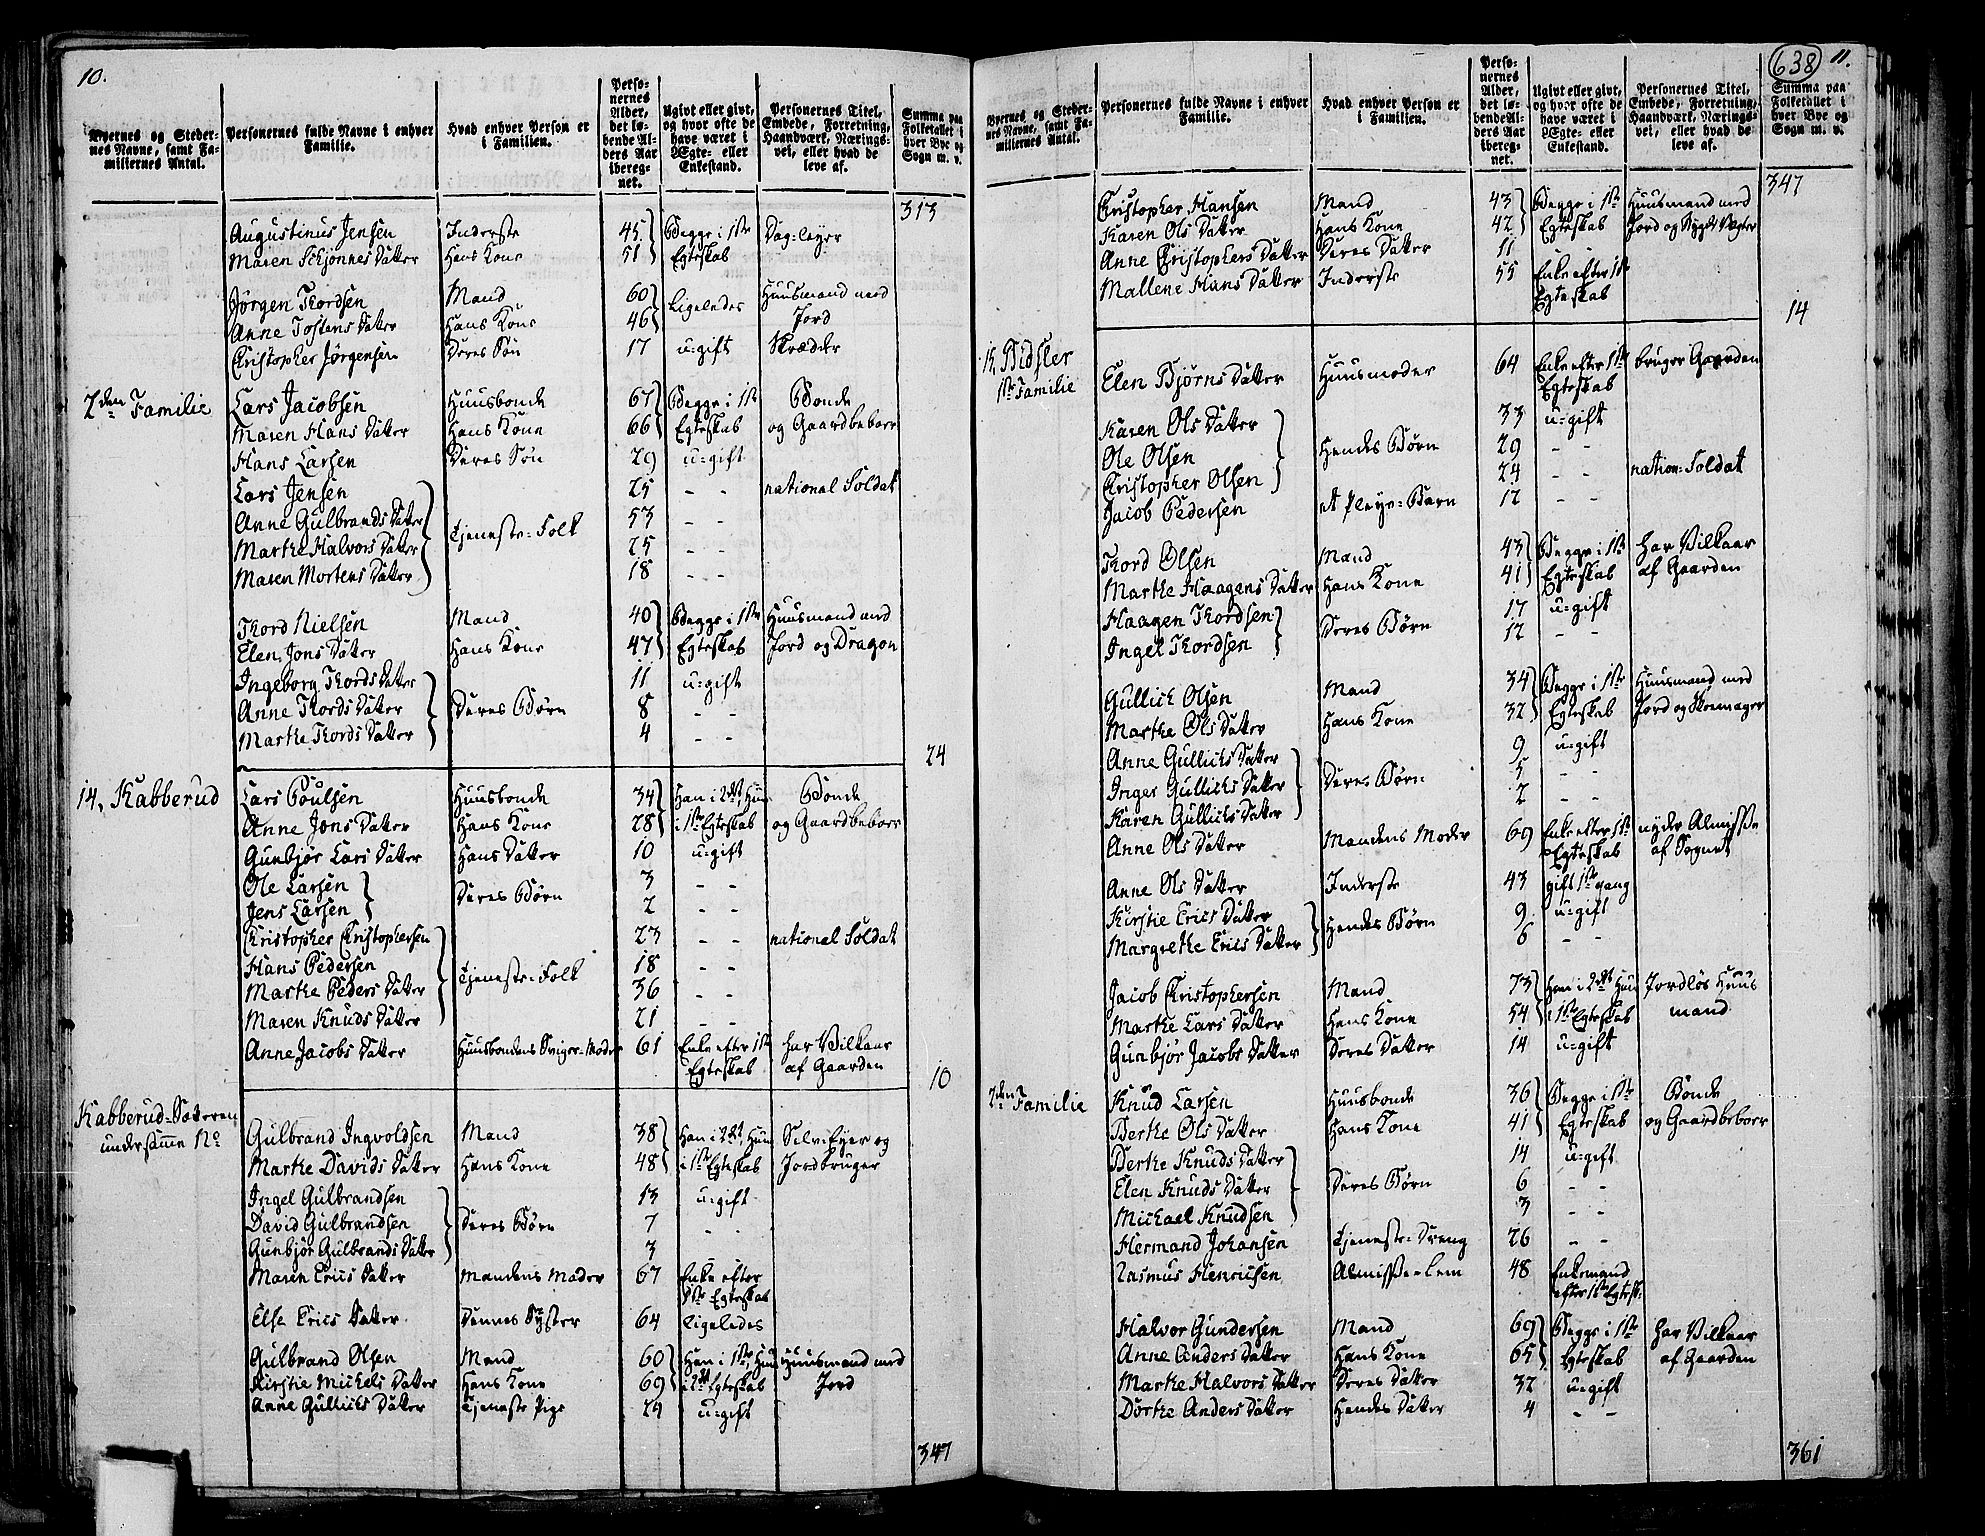 10.
Byernes og Steder-
nes Navne, samt Fa-
miliernes Antal.
Personernes fulde Navne i enhver
Familie.
Hvad enhver Person er
i Familien.
Perso-
nernes
Alder,
det lø-
bende Al-
ders Aar
ibereg-
net.
Ugivt eller givt,
og hvor ofte de
have været i
Ægte- eller
Enkestand.
Personernes Titel,
Embede, Forretning,
Haandværk, Nærings-
vei, eller hvad de
leve af.
Summa paa
Folketallet i
hver Bye og
Sogn m. v.
313
Augustinus Jensen Inderste 45 Begge i 1ste Dag-leyer
Maren Schjønnes Datter Hans Kone 51 Egteskab
Jörgen Thordsen Mand 60 Ligeledes Huusmand med
Anne Tostens Datter Hans Kone 46 Jord
Christopher Jørgensen Deres Søn 17 u-gift Skrædder
2den Familie Lars Jacobsen Huusbonde 67 Begge i 1ste Bonde
Maren Hans Datter Hans Kone 66 Egteskab og Gaardbeboer
Hans Larsen Deres Søn 29 u-gift
Lars Jensen 25 - - national Soldat
Anne Gulbrands Datter 53 - -
Marthe Halvors Datter Tjeneste-Folk 25 - -
Maren Mortens Datter 18 - -
Thord Nielsen Mand 40 Begge i 1ste Huusmand med
Elen Jons Datter Hans Kone 47 Egteskab Jord og Dragon
Ingeborg Thords Datter 11 u-gift
Anne Thords Datter Deres Børn 8 - -
Marthe Thords Datter 4 - -
24
14, Kabberud Lars Poulsen Huusbonde 34 Han i 2det, Hun Bonde
Anne Jons Datter Hans Kone 28 i 1ste Egteskab og Gaardbeboer
Gunbjør Lars Datter Hans Datter 10 u-gift
Ole Larsen 3 - -
Jens Larsen Deres Børn 2 - -
Christopher Christophersen 23 - - national Soldat
Hans Pedersen 18 - -
Marthe Peders Datter Tjeneste-Folk 36 - -
Maren Knuds Datter 21 - -
Anne Jacobs Datter Huusbondens Sviger-Moder 61 Enke efter 1ste har Vilkaar
Egteskab af Gaarden
10
Kabberud-Sæteren
under samme No
Gulbrand Ingvoldsen Mand 38 Han i 2det, Hun Selv-Eyer og
Marthe Davids Datter Hans Kone 48 i 1ste Egteskab Jordbruger
Ingel Gulbrandsen 13 u-gift
David Gulbrandsen Deres Børn 7 - -
Gunbjør Gulbrands Datter 3
Maren Erics Datter Mandens Moder 67 Enke efter
1ste Egteskab
Else Erics Datter Dennes Syster 64 Ligeledes
Gulbrand Olsen Mand 60 Han i 1ste, Hun Huusmand med
Kirstie Michels Datter Hans Kone 69 i 2det Egteskab Jord
Anne Gullichs Datter Tjeneste Pige 29 u-gift
347
638
11.
Byernes og Steder-
nes Navne, samt Fa-
miliernes Antal.
Personernes fulde Navne i enhver
Familie.
Hvad enhver Person er
i Familien.
Perso-
nernes
Alder,
det lø-
bende Al-
ders Aar
ibereg-
net.
Ugivt eller givt,
og hvor ofte de
have været i
Ægte- eller
Enkestand.
Personernes Titel,
Embede, Forretning,
Haandværk, Nærings-
vei, eller hvad de
leve af.
Summa paa
Folketallet i
hver Bye og
Sogn m. v.
347
Christopher Hansen Mand 43 Begge i 1ste Huusmand med
Karen Ols Datter Hans Kone 42 Egteskab Jord og
Anne Christophers Datter Deres Datter 11
Mallene Hans Datter Inderste 55 Enke efter 1ste
Egteskab
14
15, Bidsler
1ste Familie Elen Bjørns Datter Huusmoder 64 Enke efter 1ste bruger Gaarden
Egteskab
Karen Ols Datter 33 u-gift
Ole Olsen Hendes Børn 29 - -
Christopher Olsen 24 - - nation: Soldat
Jacob Pedersen et Pleye-Barn 12 - -
Thord Olsen Mand 43 Begge i 1ste har Vilkaar
Marthe Haagens Datter Hans Kone 41 Egteskab af Gaarden
Haagen Thordsen 17 u-gift
Ingel Thordsen Deres Børn 12 - -
Gullich Olsen Mand 34 Begge i 1ste Huusmand med
Marthe Ols Datter Hans Kone 32 Egteskab Jord og Skomager
Anne Gullichs Datter 9 u-gift
Inger Gullichs Datter Deres Børn 5 - -
Karen Gullichs Datter 2 - -
Anne Ols Datter Mandens Moder 69 Enke efter 1ste nyder Almisse
Egteskab af Sognet
Anne Ols Datter Inderste 43 gift 1ste gang
Kirstie Erics Datter 9 u-gift
Margrethe Erics Datter Hendes Børn 6 - -
Jacob Christophersen Mand 73 Han i 2det, Hun Jordløs Huus
Marthe Lars Datter Hans Kone 54 i 1ste Egteskab mand
Gunbjør Jacobs Datter Deres Datter 14 u-gift
2den Familie Knud Larsen Huusbonde 36 Begge i 1ste Bonde
Berthe Ols Datter Hans Kone 41 Egteskab og Gaardbeboer
Berthe Knuds Datter 14 u-gift
Elen Knuds Datter Deres Børn 6 - -
Michael Knudsen 3 - -
Hermand Johansen Tjeneste-Dreng 26 - -
Rasmus Henricsen Almisse-Lem 48 Enkemand
efter 1ste Egtesk:
Halvor Gundersen Mand 69 Begge i 1ste har Vilkaar
Anne Anders Datter Hans Kone 65 Egteskab af Gaarden
Marthe Halvors Datter Deres Datter 32 u-gift
Dorthe Anders Datter Hendes Datter 4 - -
361